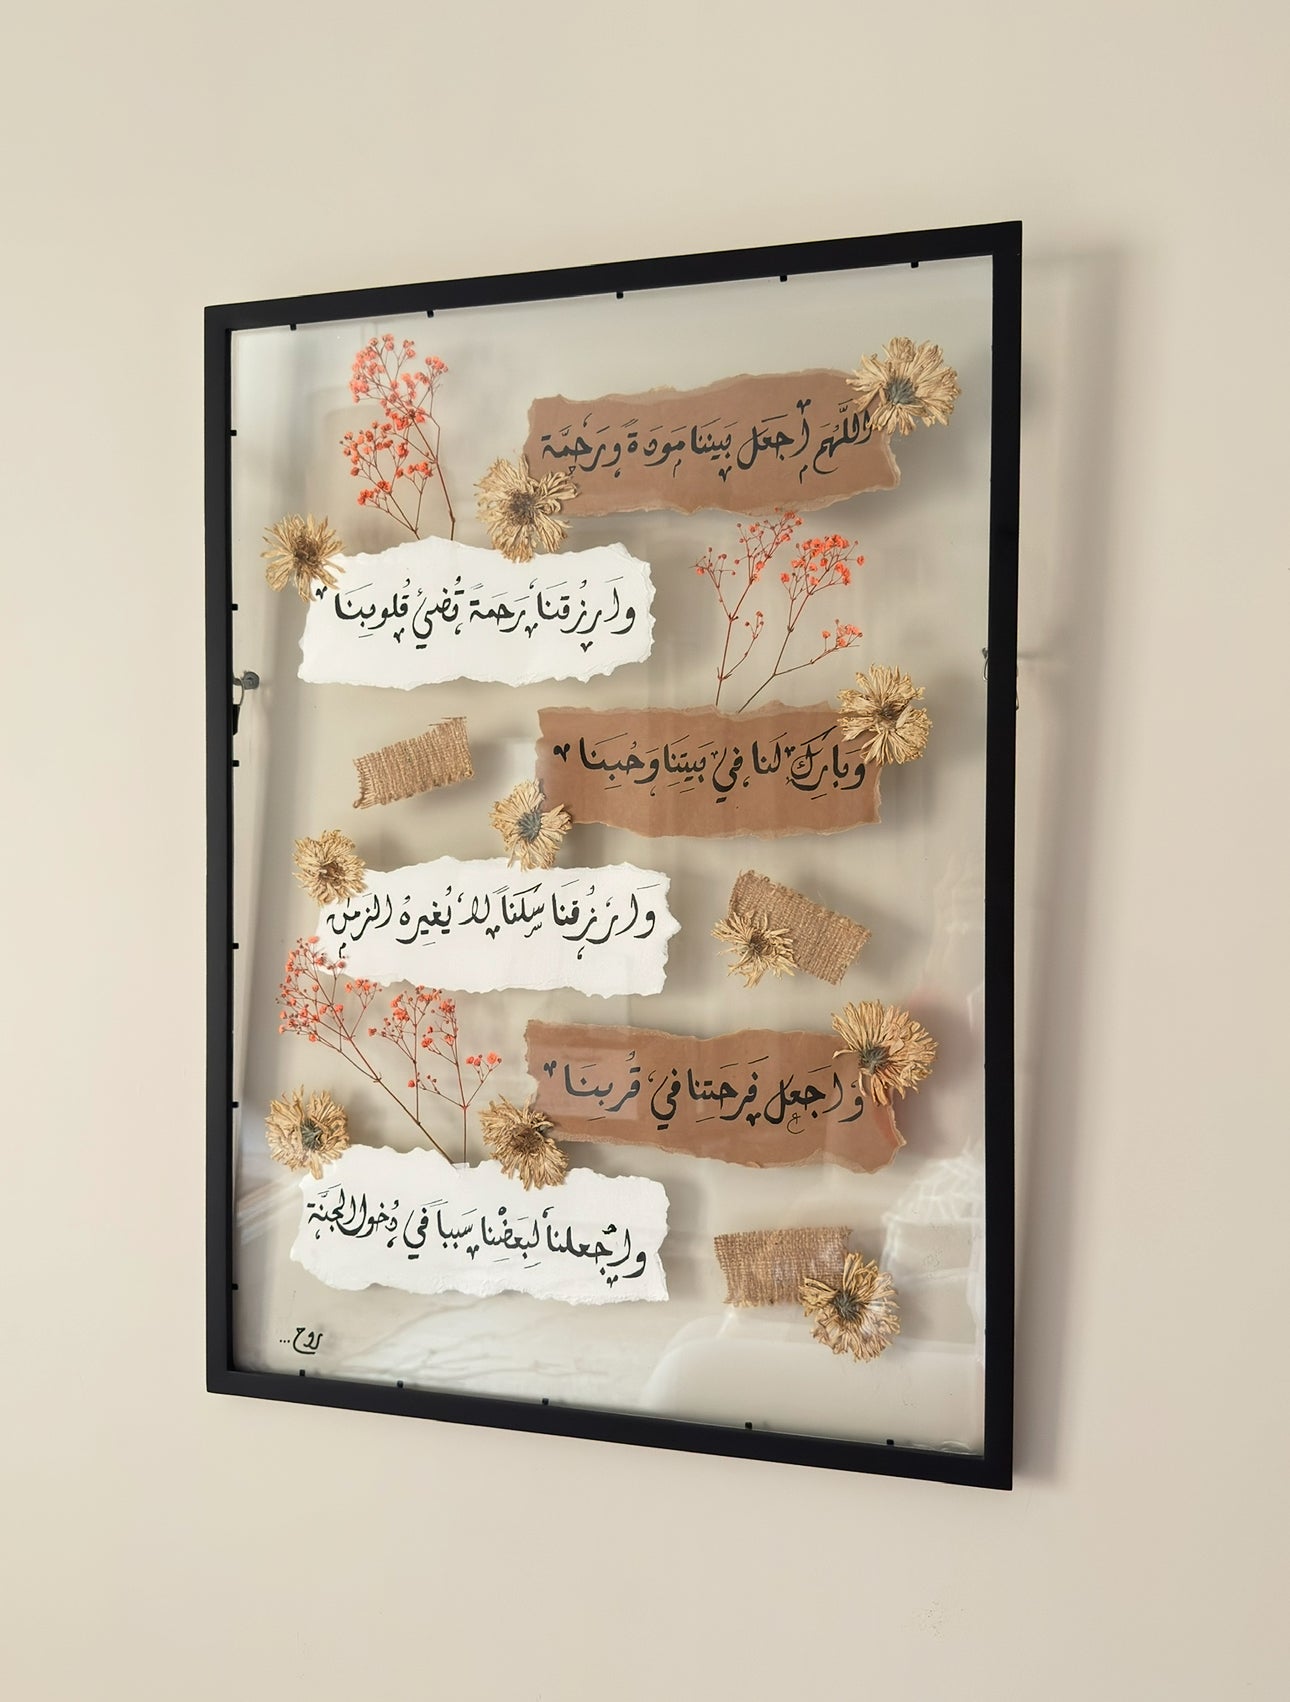 اللَّهُم اجعَل بَيننا مودةً ورَحمَة
وارزُقنا رَحمةً تُضئ قُلوبِنا
وَبارِك لَنا في بَيتِنا وَحُبِنا
وَارزُقنَا سَكَناً لا يُغيِرهُ الزمن
وَاجعل فَرحَتنا في قُربِنا
واجعلنا لِبَعَضْنا سَبباً في دُخول الجنَّة
روح...